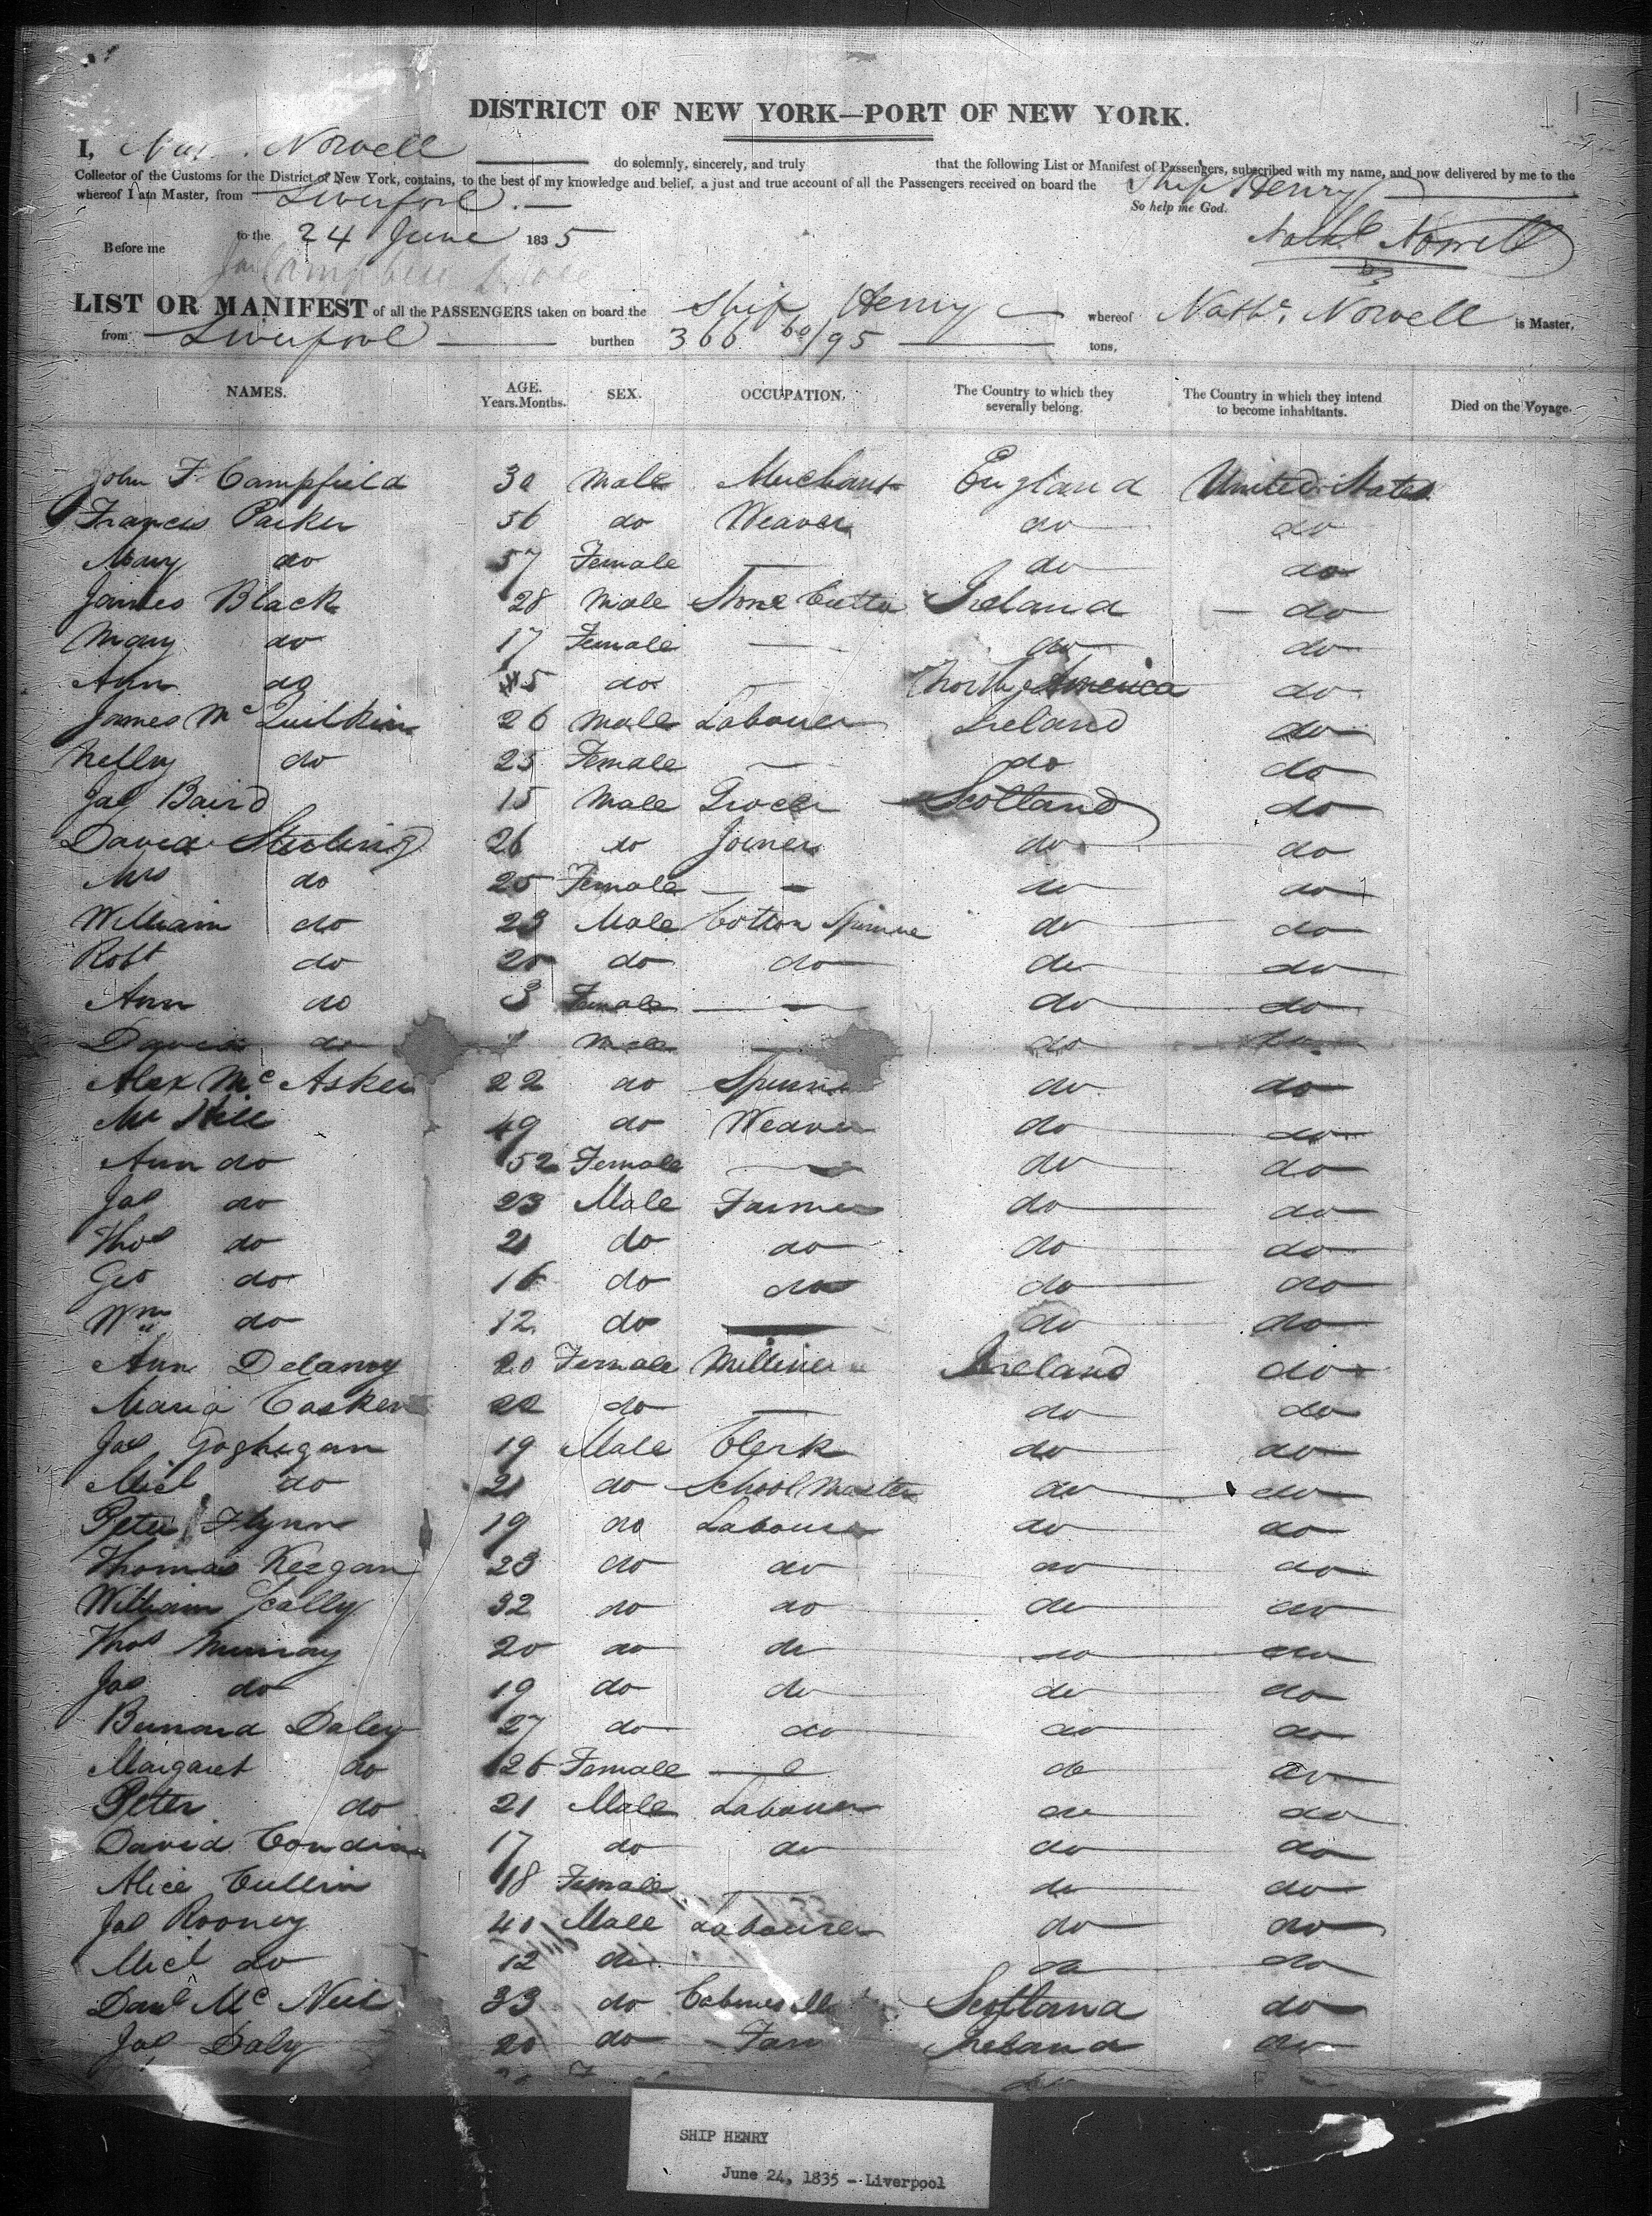 DISTRICT OF NEW YORK—PORT OF NEW YORK.
I, Nowell do solemnly, sincerely, and truly that the following List or Manifest of Passengers, subscribed with my name, and now delivered by me to the
Collector of the Customs for the District of New York, contains, to the best of my knowledge and belief, a just and true account of all the Passengers received on board the Ship Henry
whereof I am Master, from Liverpool. So help me God.
to the 24 June 1835 Nathl Nowell
Before me
LIST OR MANIFEST of all the PASSENGERS taken on board the Ship Henry whereof Nathl. Nowell is Master,
from Liverpool burthen 366 60/95 tons,
NAMES. AGE. Years. Months. SEX. OCCUPATION. The Country to which they severally belong. The Country in which they intend to become inhabitants. Died on the Voyage.
John F Campfield 30 Male Merchant England United States
Francis Parker 56 do Weaver do do
Mary do 57 Female — do do
James Black 28 Male Stone Cutter Ireland do
Mary do 17 Female — do do
Ann do 5 do — North America do
James McQuilkin 26 Male Labourer Ireland do
Nelly do 25 Female — do do
Jas Baird 15 Male Grocer Scotland do
David Sterling 26 do Joiner do do
Mrs do 25 Female — do do
William do 23 Male Cotton Spinner do do
Robt do 20 do do do do
Ann do 3 Female — do do
David do Male — do do
Alex Mc Asken 22 do Spinner do do
Mr Hill 49 do Weaver do do
Ann do 52 Female — do do
Jas do 23 Male Farmer do do
Thos do 21 do do do do
Geo do 16 do do do do
Wm do 12 do — do do
Ann Delamy 20 Female Milliner Ireland do
Maria Casken 22 do — do do
Jas Goghegan 19 Male Clerk do do
Micl do 21 do School Master do do
Peter Flynn 19 do Labourer do do
Thomas Keegan 23 do do do do
William Scally 32 do do do do
Thos Murray 20 do do do do
Jas do 19 do do do do
Bernard Daley 27 do do do do
Margaret do 26 Female — do do
Peter do 21 Male Labourer do do
David 17 do do do do
Alice Cullin 18 Female — do do
Jas Rooney 40 Male Labourer do do
Micl do 12 do do do
Danl Mc Neil 33 do Scotland do
Jas Daly 20 do Far Ireland do
SHIP HENRY
June 24, 1835 - Liverpool